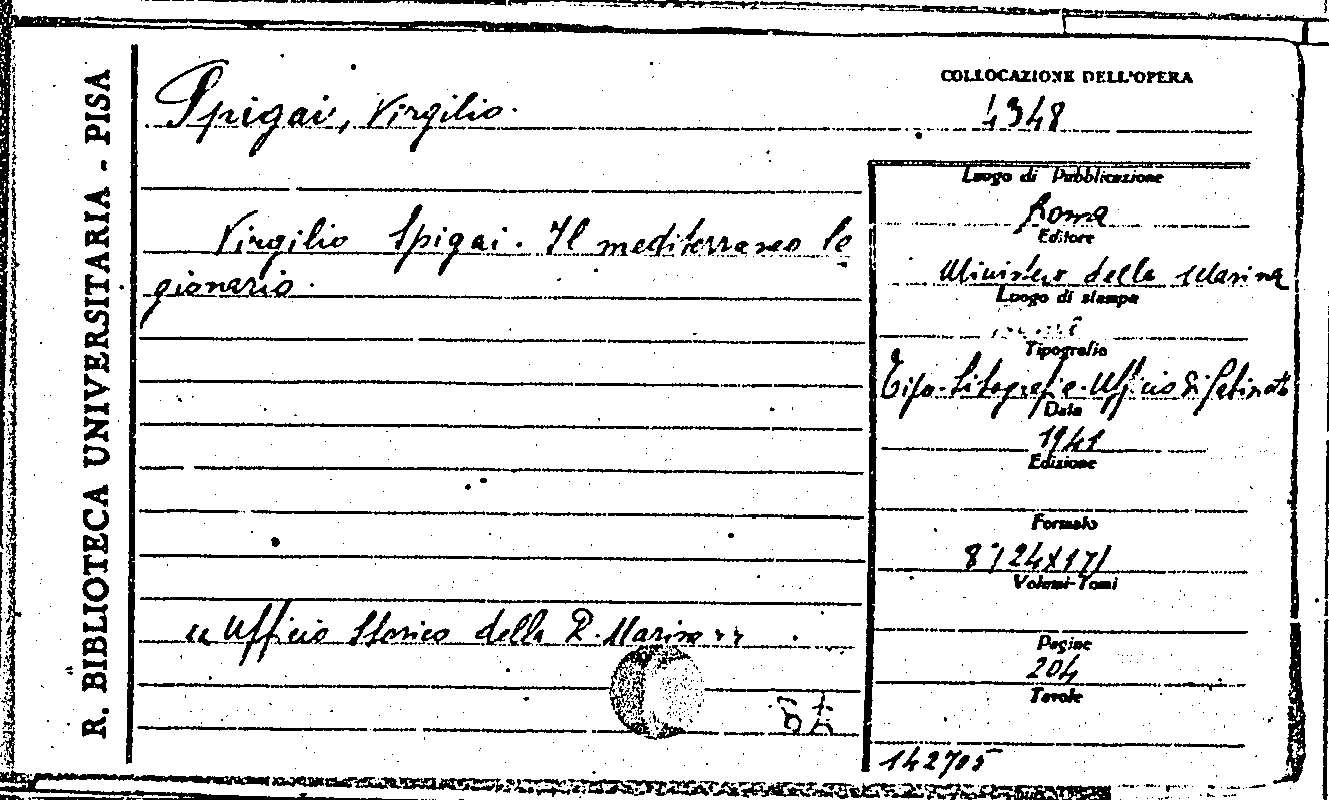 R. BIBLIOTECA UNIVERSITARIA - PISA
Spigai, Virgilio.
Virgilio Spigai. Il mediterraneo le
gionario.
« Ufficio Storico della R. Marina »
COLLOCAZIONE DELL'OPERA
4348
Luogo di Pubblicazione
Roma
Editore
Ministero della Marina
Luogo di stampa
Tipografia
Tipo-Litografia-Ufficio di Gabinetto
Data
1941
Edizione
Formato
8°/24X17/
Volumi-Tomi
Pagine
204
Tavole
142705